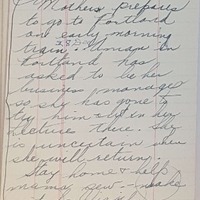 Mother prepares
to go to Portland
on early morning
train. A man in
Portland has
asked to be her
business manager
so she has gone to
try him out in her
lectures there. Say
is uncertain when
she will returning.
Stay home & help
mama sew - make